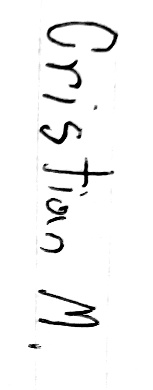 Cristian M.